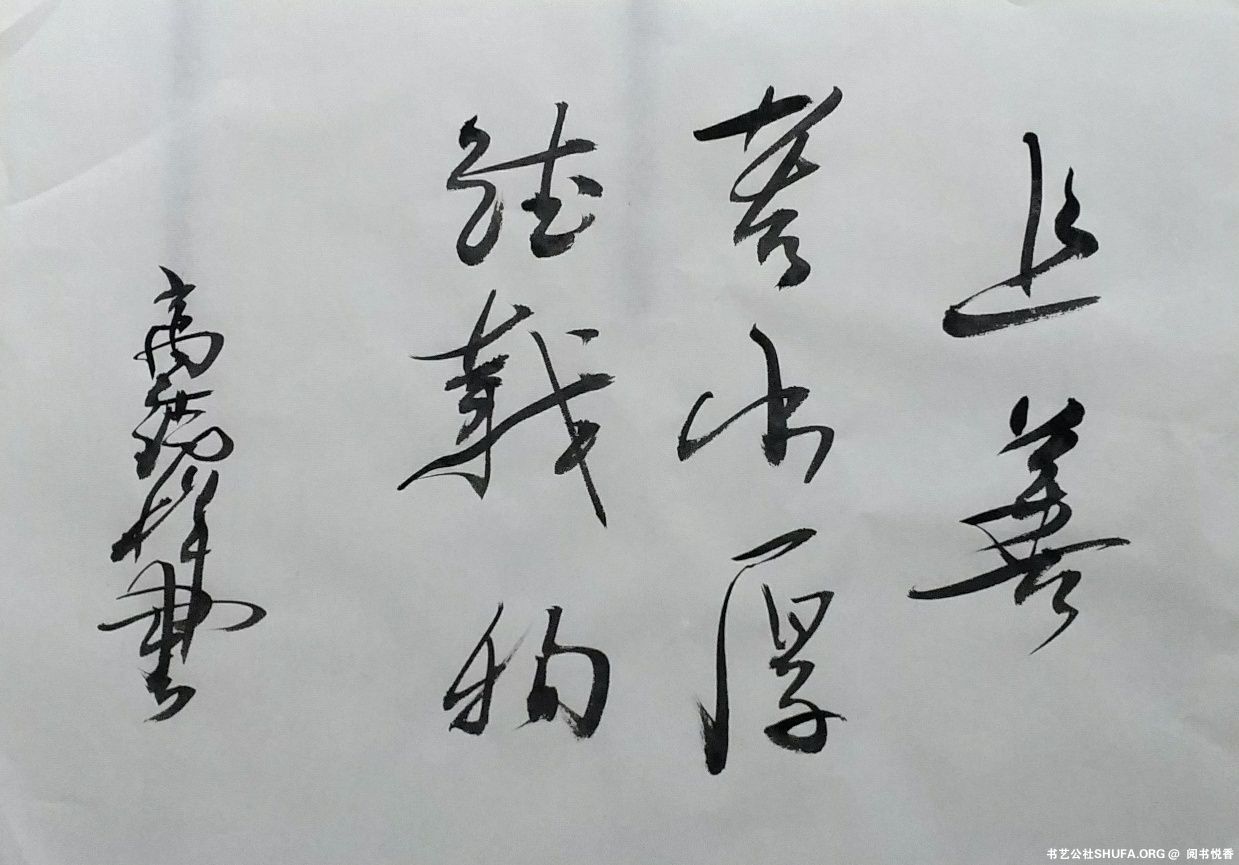 上善
若水厚
德載物
高瑞祥書
书艺公社SHUFA.ORG @ 阅书悦香